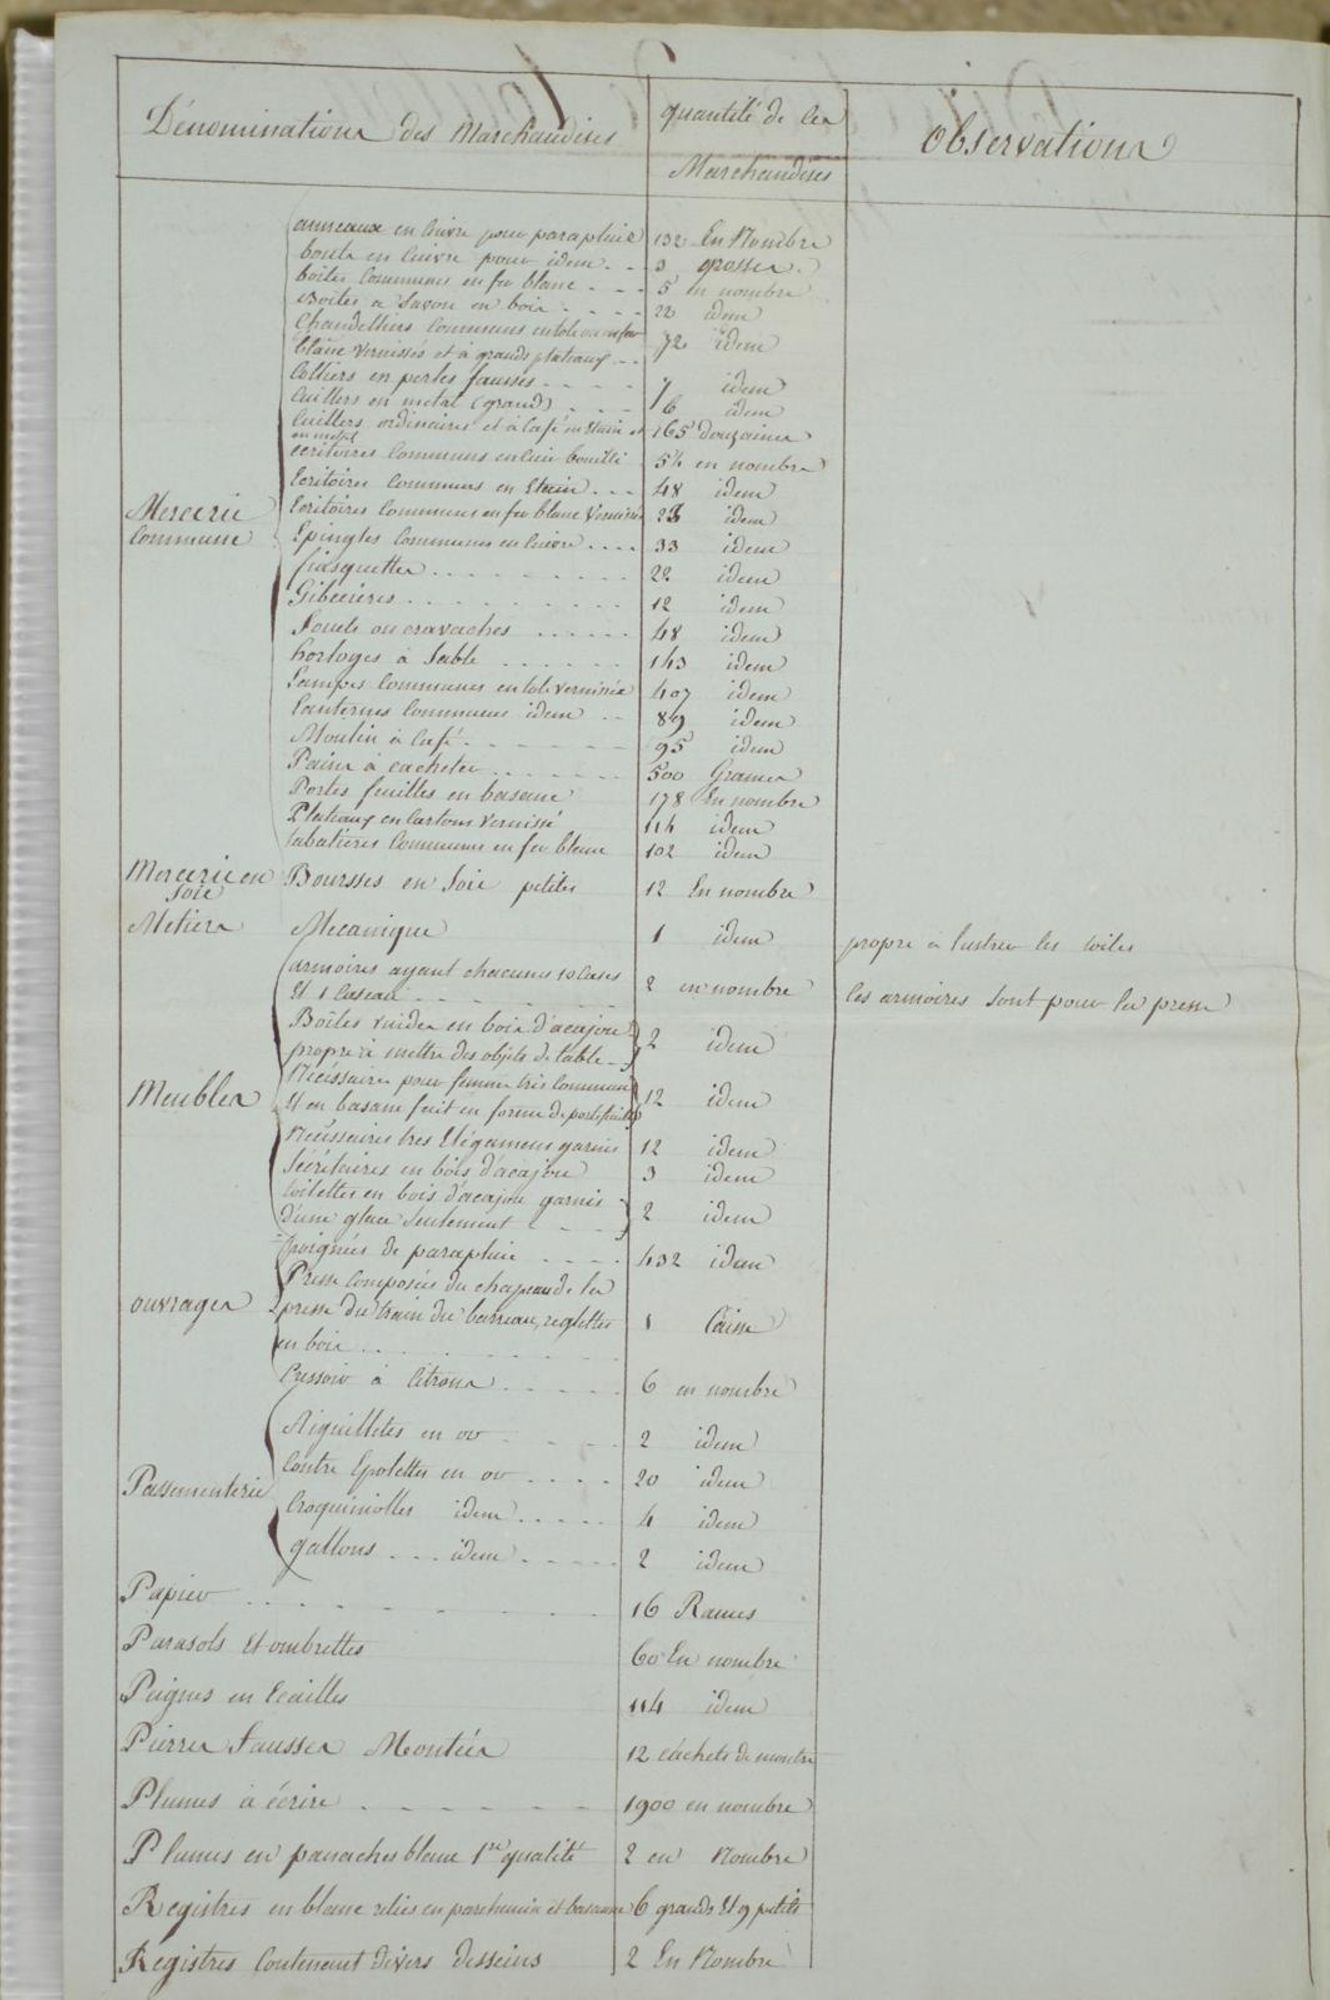 Dénominations des Marchandises
quantité de les
Marchandises
Observations
anneaux en Cuivre pour parapluie 132 En Nombre
bouts en Cuivre pour idem 3 grosses
boites Communes en fer blanc 5 en nombre
Boites a Savon en bois 22 idem
Chandelliers Communs en tole ou en fer
blanc vernissés et à grands plateaux 72 idem
Colliers en perles fausses 7 idem
Cuillers en metal (grand) 6 idem
Cuillers ordinaires et à Café en Etain et
en metal 165 douzaines
ecritoires Communs en Cuir bouilli 54 en nombre
Ecritoires Communs en Etain 48 idem
Mercerie
Commune
Ecritoires Communs en fer blanc Vernissé idem
Epingles Communes en Cuivre 33 idem
frasquettes 22 idem
Gibecieres 12 idem
Fouets ou cravaches 48 idem
horloges à Sable 143 idem
Lampes Communes en tole vernissée 407 idem
Lanternes Communes idem 89 idem
Moulin à Café 95 idem
Pains à cacheter 500 Grames
Portes feuilles en basane 178 En nombre
Plateaux en Cartons Vernissé 114 idem
tabatieres Communes en fer blanc 102 idem
Mercerie en
Soie
Boursses en Soie petites 12 En nombre
Metiers Mecanique 1 idem propre à lustrer les toiles
armoires ayant chacunes 10 Cases
Et 1 Caseau 2 en nombre les armoires sont pour la presse
Boites vuides en bois d'acajou
propre à mettre des objets de table 2 idem
Meubles
Nécéssaires pour femme très Commun
Et en basane fait en forme de portefeuille 12 idem
Nécessaires tres Elégamens garnis 12 idem
Sécrétaires en bois d'acajou 3 idem
toilettes en bois d'acajou garnis
d'une glace Seulement 2 idem
Poignées de parapluie 432 idem
ouvrages
Presse Composées du chapeau de la
presse du train du barreau, reglettes
en bois 1 Caisse
Pressoir à Citrons 6 en nombre
Passementerie
Aiguilletes en or 2 idem
Contre Epolettes en or 20 idem
Croquiniolles idem 4 idem
gallons idem 2 idem
Papier 16 Rames
Parasols Et ombrettes 60 En nombre
Peignes en Ecailles 114 idem
Pierres fausses Montées 12 cachets de montre
Plumes à écrire 1900 en nombre
Plumes en panaches blanc 1re qualité 2 en Nombre
Registres en blanc reliés en parchemin et basanne 6 grands Et 9 petits
Registres Contenant divers desseins 2 En Nombre